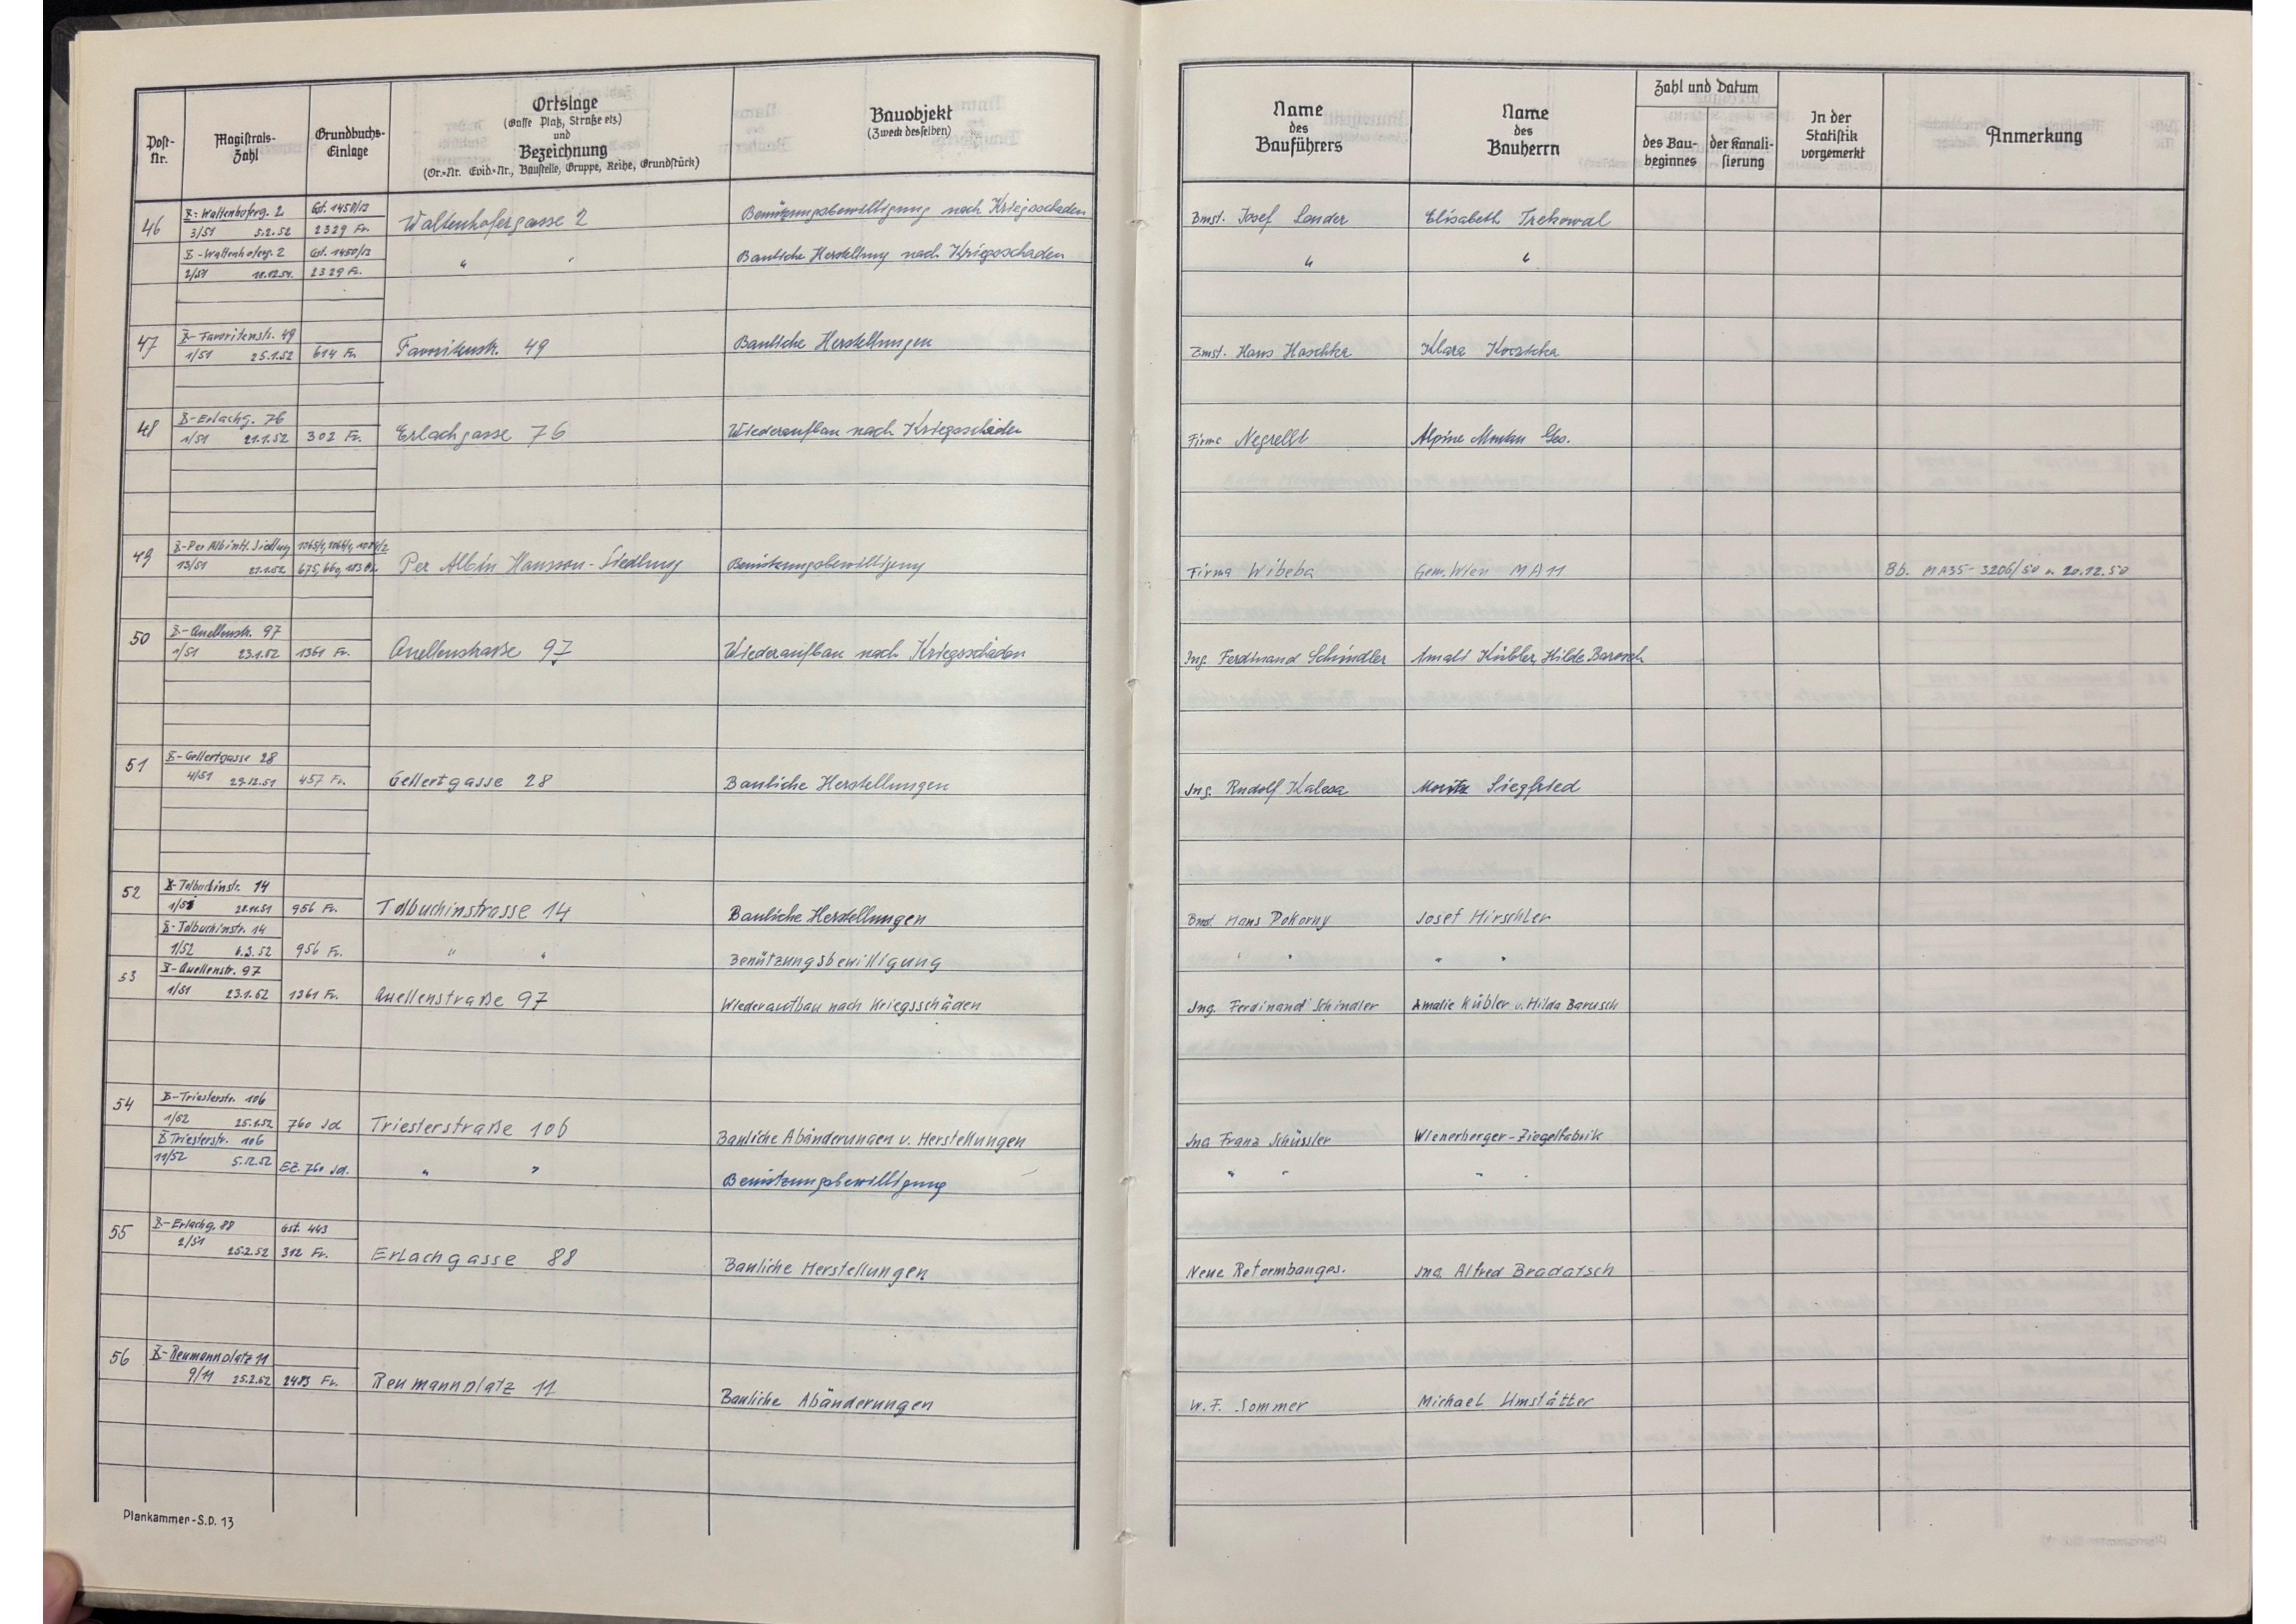 Post-Nr. Magistrats-Zahl Grundbuchs-Einlage Ortslage (Gasse Platz, Straße etz.) und Bezeichnung (Or.-Nr. Evid.-Nr., Baustelle, Gruppe, Reihe, Grundstück) Bauobjekt (Zweck desselben) Name des Bauführers Name des Bauherrn Zahl und Datum des Baubeginnes der Kanalisierung In der Statistik vorgemerkt Anmerkung
46 X-Waltenhoferg. 2 Gst. 1450/13
3/51 5.2.52 2329 Fr. Waltenhofergasse 2 Benützungsbewilligung nach Kriegsschaden Bmst. Josef Sander Elisabeth
X-Waltenhoferg. 2 Gst. 1450/13
2/51 2329 Fr. " " Bauliche Herstellung nach Kriegsschaden " "
47 X-Favoritenstr. 49
1/51 25.1.52 614 Fr. Favoritenstr. 49 Bauliche Herstellungen Bmst. Hans Haschka Klara
48 X-Erlachg. 76
1/51 21.1.52 302 Fr. Erlachgasse 76 Wiederaufbau nach Kriegsschäden Firma Negrelli Alpine Montan Ges.
49 X-Per Albin H. Siedlung
13/51 21.1.52 Per Albin Hansson-Siedlung Benützungsbewilligung Firma Wibeba Gem. Wien MA 11 Bb. MA35-3206/50 v. 20.12.50
50 X-Quellenstr. 97
1/51 23.1.52 1361 Fr. Quellenstraße 97 Wiederaufbau nach Kriegsschäden Ing. Ferdinand Schindler Amali Kübler, Hilde Barosch
51 X-Gellertgasse 28
4/51 29.12.51 457 Fr. Gellertgasse 28 Bauliche Herstellungen Ing. Rudolf Kalesa Moritz Siegfried
52 X-Tolbuchinstr. 14
1/51 956 Fr. Tolbuchinstrasse 14 Bauliche Herstellungen Bmst. Hans Pokorny Josef Hirschler
X-Tolbuchinstr. 14
1/52 6.3.52 956 Fr. " " Benützungsbewilligung " " " "
53 X-Quellenstr. 97
1/51 23.1.52 1361 Fr. Quellenstraße 97 Wiederaufbau nach Kriegsschäden Ing. Ferdinand Schindler Amalie Kübler u. Hilda Barusch
54 X-Triesterstr. 106
1/52 25.1.52 760 Jd Triesterstraße 106 Bauliche Abänderungen u. Herstellungen Ing Franz Schüssler Wienerberger-Ziegelfabrik
X Triesterstr. 106
11/52 5.12.52 EZ. 760 Jd. " " Benützungsbewilligung " " " "
55 X-Erlachg. 88 Gst. 443
2/51 25.2.52 312 Fr. Erlachgasse 88 Bauliche Herstellungen Neue Reformbauges. Ing. Alfred Bradatsch
56 X-Reumannplatz 11
9/11 25.2.52 2483 Fr. Reumannplatz 11 Bauliche Abänderungen W.F. Sommer Michael Umstätter
Plankammer-S.D. 13